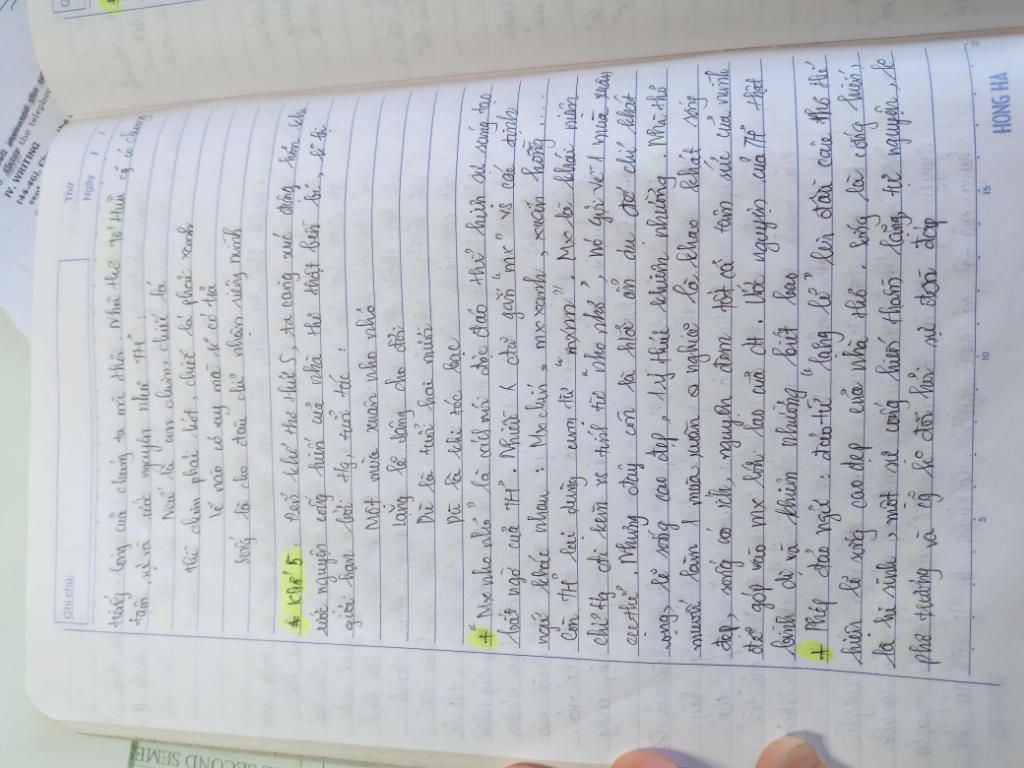 Thứ
Ngày
Ghi chú:
trong lòng của chúng ta mà thôi. Nhà thơ Tố Hữu cg có chung
tâm sự và ước nguyện như TH:
Nếu là con chim, chiếc lá
Thì chim phải hót, chiếc lá phải xanh
Lẽ nào có vay mà k có trả
Sống là cho đâu chỉ nhận riêng mình
* Khổ 5: đến khổ thơ thứ 5, ta càng xúc động hơn khi
ước nguyện cống hiến của nhà thơ thật bền bỉ, k bị
giới hạn bởi tg, tuổi tác:
Một mùa xuân nho nhỏ
Lặng lẽ dâng cho đời
Dù là tuổi hai mươi
Dù là khi tóc bạc
+ "Mx nho nhỏ" là cách nói độc đáo thể hiện sự sáng tạo
bất ngờ của TH. Nhiều chữ gắn "mx" vs các định
ngữ khác nhau: Mx chín, mx xanh, xuân hồng...
Còn TH lại dùng cụm từ "mxnn". Mx là khái niệm
chỉ tg đi kèm vs tính từ "nho nhỏ", nó gợi về 1 mùa xuân
cụ thể. Nhưng đây còn là h/a ẩn dụ cho chỉ khát
vọng, lẽ sống cao đẹp, 1 ý thức khiêm nhường. Nhà thơ
muốn làm 1 mùa xuân nghĩa là khao khát sống
đẹp, sống có ích, nguyện đem tất cả tâm sức của mình
để góp vào mx lớn lao của đn. Ước nguyện của TH thật
bình dị và khiêm nhường biết bao
+ Phép đảo ngữ: đảo từ "lặng lẽ" lên đầu câu thơ thể
hiện lẽ sống cao đẹp của nhà thơ. Sống là cống hiến,
là hi sinh, một sự cống hiến thầm lặng tự nguyện, k
phô trương và cg k đòi hỏi sự đền đáp
5
10
15
HONG HA
IV. WRITING
SECOND SEME